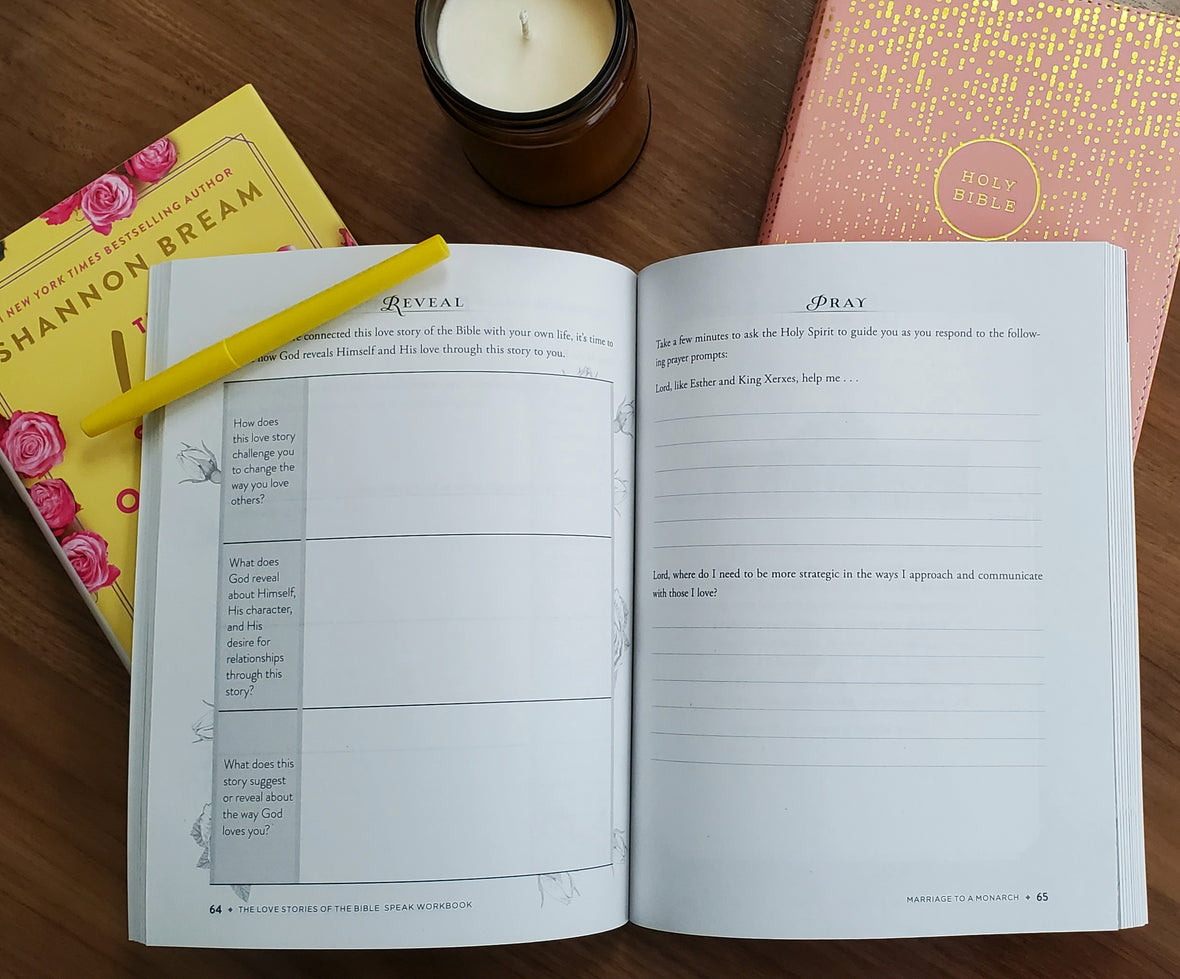 HOLY
BIBLE
NEW YORK TIMES BESTSELLING AUTHOR
SHANNON BREAM
REVEAL
connected this love story of the Bible with your own life, it's time to
how God reveals Himself and His love through this story to you.
How does
this love story
challenge you
to change the
way you love
others?
What does
God reveal
about Himself,
His character,
and His
desire for
relationships
through this
story?
What does this
story suggest
or reveal about
the way God
loves you?
64 ✦ THE LOVE STORIES OF THE BIBLE SPEAK WORKBOOK
PRAY
Take a few minutes to ask the Holy Spirit to guide you as you respond to the follow-
ing prayer prompts:
Lord, like Esther and King Xerxes, help me . . .
Lord, where do I need to be more strategic in the ways I approach and communicate
with those I love?
MARRIAGE TO A MONARCH ✦ 65